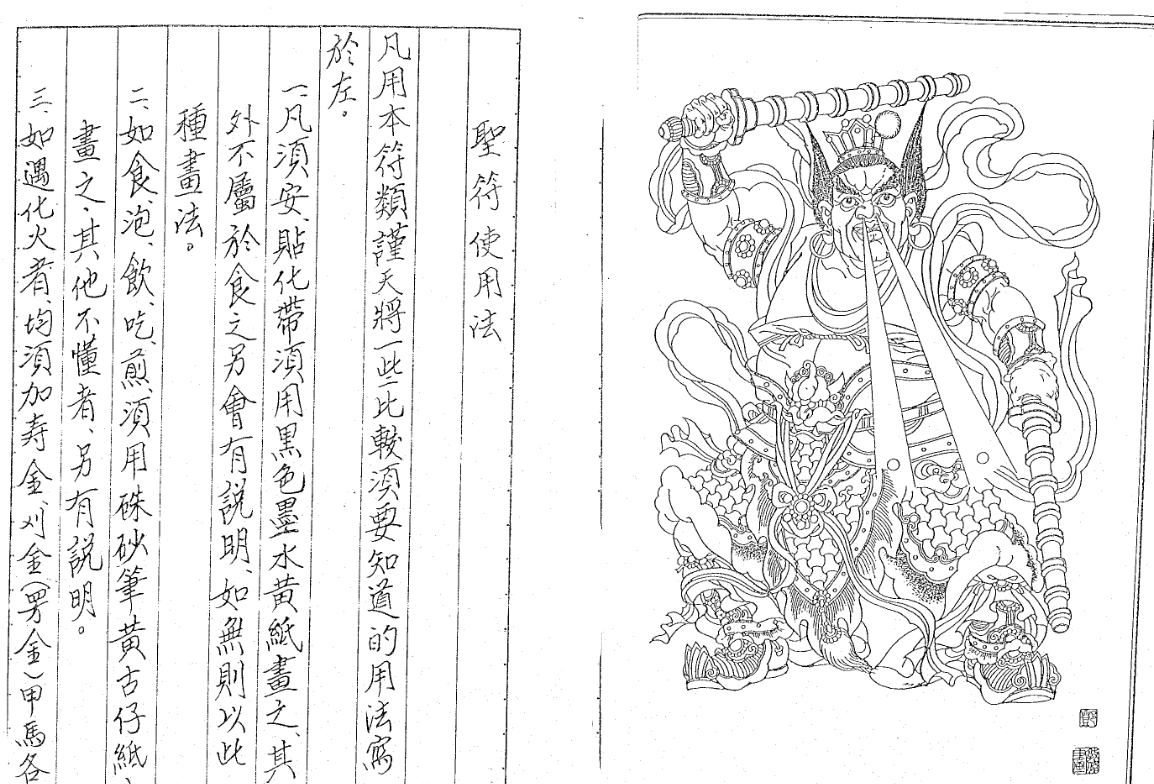 聖符使用法
凡用本符類謹天將一些比較須要知道的用法寫
於左。
一、凡須安、貼化帶須用黑色墨水黃紙畫之、其
外不屬於食之另會有説明、如無則以此
種畫法。
二、如食、泡、飲、吃、煎、須用硃砂筆黃古仔紙
畫之、其他不懂者、另有説明。
三、如遇化火者、均須加寿金、刈金（男金）甲馬各